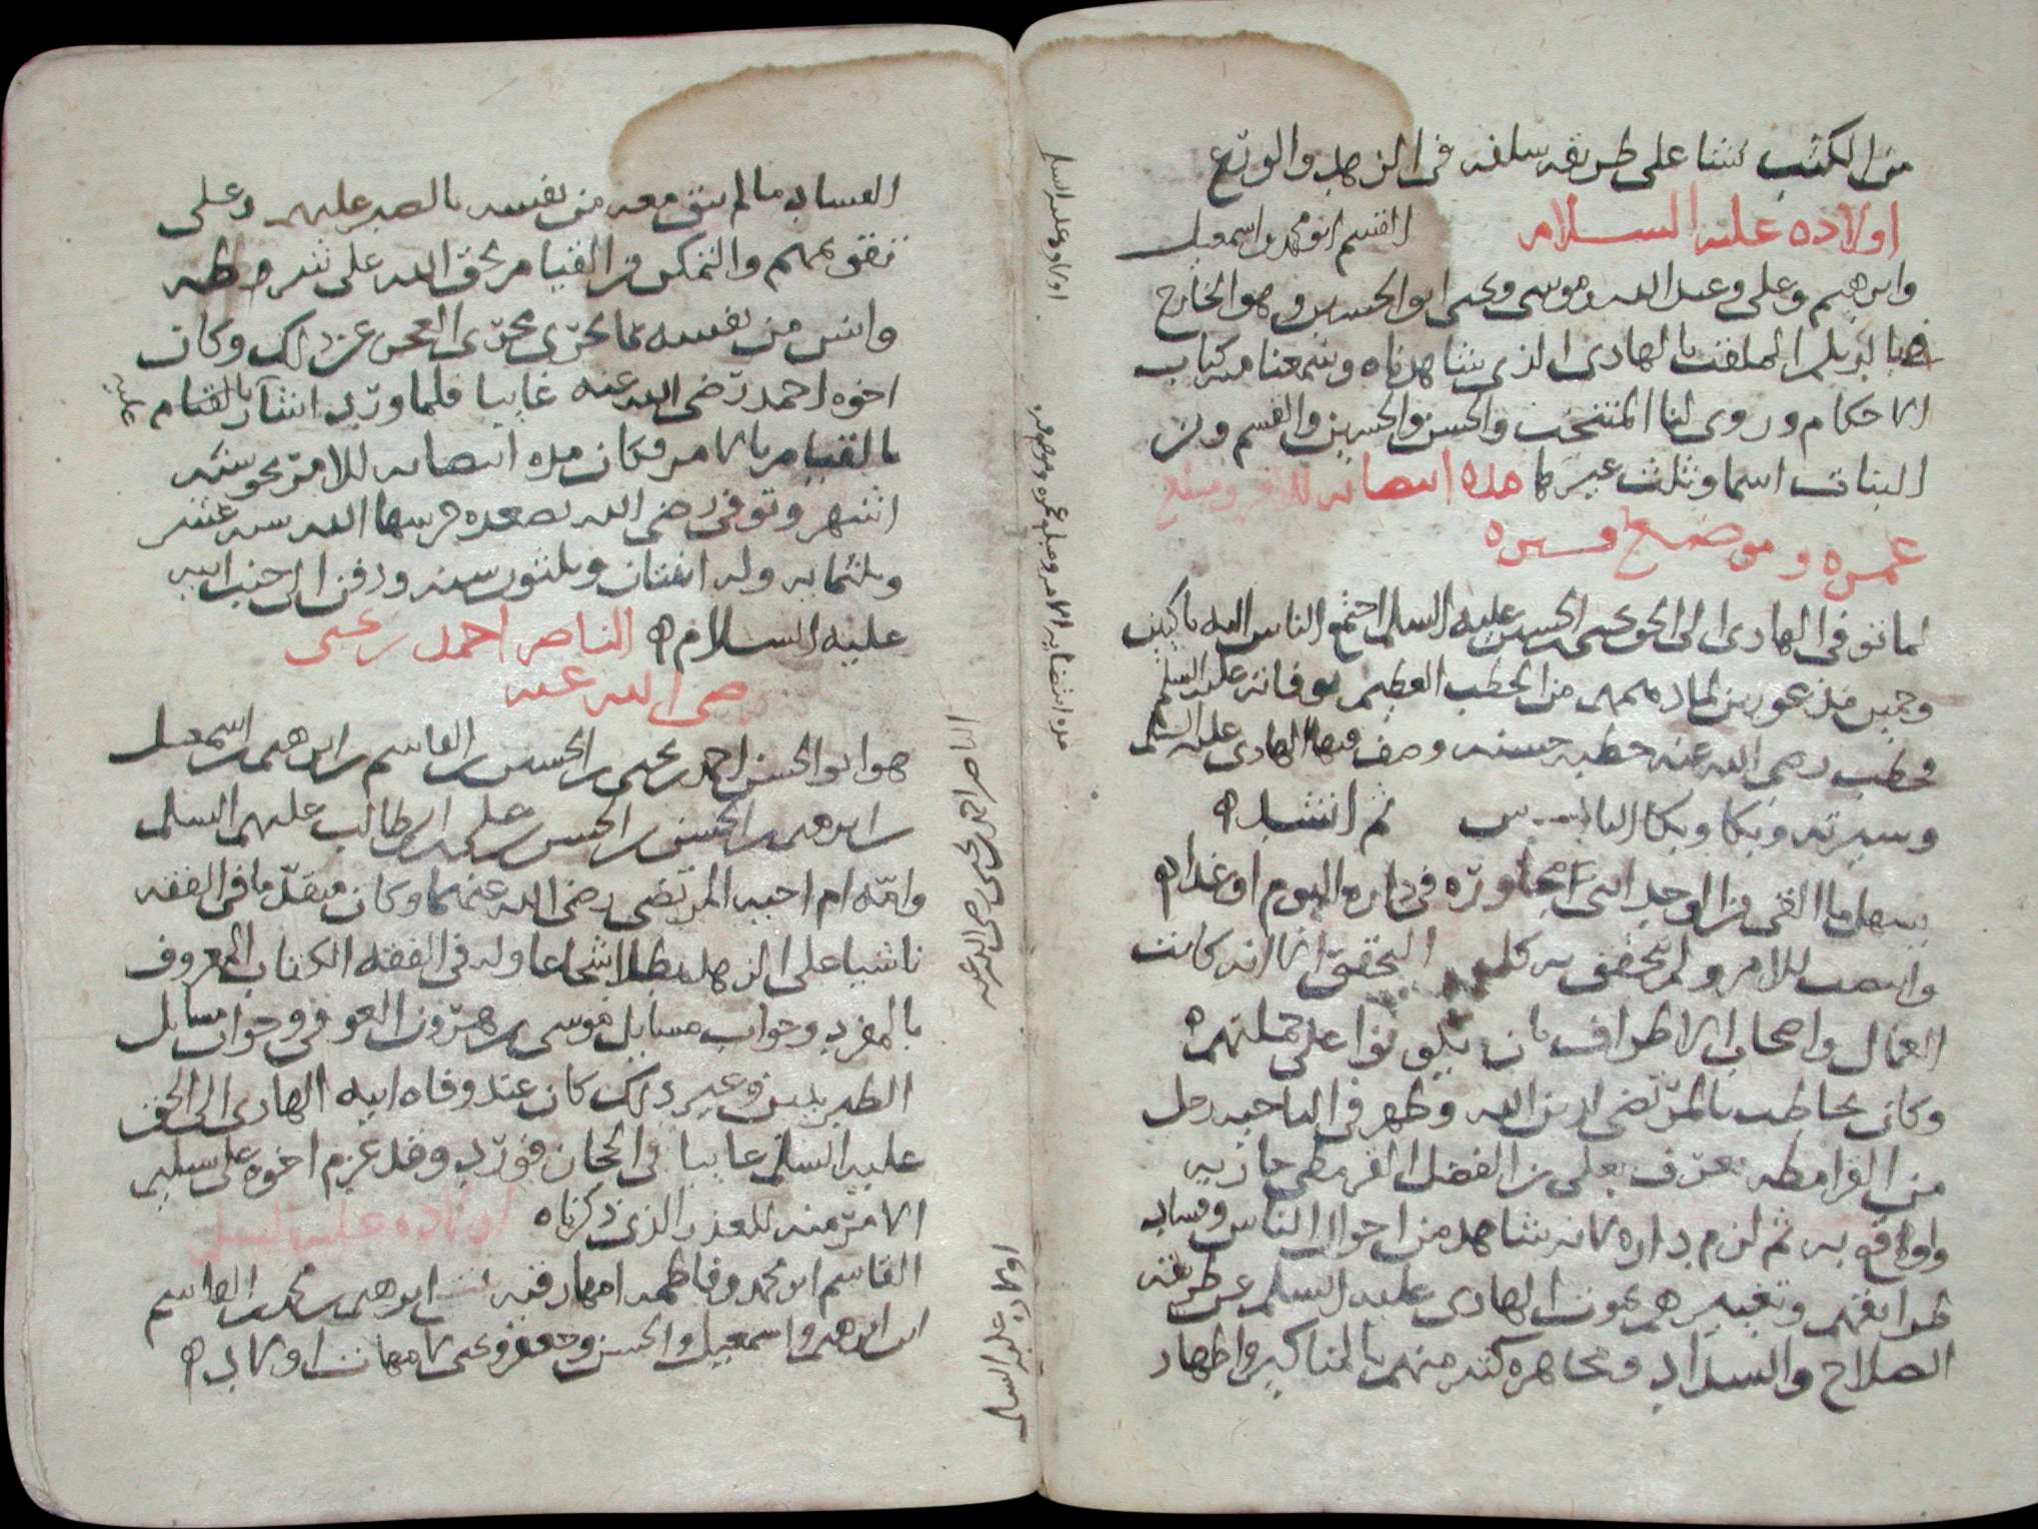 من الكتب نشا على طريقه سلفه فى الزهد والورع
اولاده عليه السلام القسم ابو محمد واسمعيل
وابرهيم وعلى وعبد الله وموسى ويحيى ابو الحسين وهو الخارج
الملقب بالهادى الذى شاهدناه وسمعنا منه كتاب
الاحكام وروى لنا المنتخب والحسن والحسين والقسم ومن
البنات اسما وثلث غيرها مده انتصابه للامر ومبلغ
عمره وموضع قبره
لما توفى الهادى الى الحق يحيى بن الحسين عليه السلم اجتمع الناس اليه باكين
من الخطب العظيم بوفاته عليه السلم
فخطب رضى الله عنه خطبه حسنه وصف فيها الهادى عليه السلم
وسيرته وبكا وبكا الناس ثم انشد
يسهل ما القى من الوجد اننى مجاوره فى داره اليوم او غدا
وانتصب للامر ولم يتحقق به كل التحقق الا انه كانت
العمال واصحاب الاطراف على جملتهم
وكان يخاطب بالمرتضى لدين الله وظهر فى الناحيه رجل
من القرامطه يعرف بعلى بن الفضل القرمطى حاربه
وواقع به ثم لزم داره لما شاهد من احوال الناس وفساد
طرايقهم وتغييرهم بموت الهادى عليه السلم عن طريقه
الصلاح والسداد ومجاهره كثير منهم بالمناكير واظهار
اولاده عليه السلم
مده انتصابه للامر ومبلغ عمره وموضع قبره
الفساد ما لم يثق معه من نفسه بالصبر عليهم وعلى
تقويمهم والتمكن من القيام بحق الله على شروطه
وانس من نفسه بما يجرى مجرى العجز عن ذلك وكان
اخوه احمد رضى الله عنه غايبا فلما ورد اشار بالقيام عليه
بالقيام بالامر فكان مده انتصابه للامر نحو سته
اشهر وتوفى رضى الله بصعده حرسها الله سنه عشر
وثلثمايه وله اثنتان وثلثون سنه ودفن الى جنب ابيه
عليه السلام الناصر احمد بن يحيى
رضى الله عنه
هو ابو الحسن احمد بن يحيى بن الحسين بن القاسم بن ابرهيم بن اسمعيل
بن ابرهيم بن الحسن بن الحسن بن على بن ابى طالب عليهم السلم
وامه ام اخيه المرتضى رضى الله عنهما وكان متقدما فى الفقه
ناشيا على الزهد بطلا شجاعا وله فى الفقه الكتاب المعروف
بالمفرد وجواب مسايل موسى بن هرون العوفى وجواب مسايل
الطبريين وغير ذلك كان عند وفاه ابيه الهادى الى الحق
عليه السلم غايبا فى الحجاز فورد وقد عزم اخوه على تسليم
الامر منه للعذر الذى ذكرناه اولاده عليه السلم
القاسم ابو محمد وفاطمه امهما رقيه بنت ابرهيم بن محمد بن القاسم
ابن ابرهيم واسمعيل والحسن وجعفر ويحيى لامهات اولاد
الناصر احمد بن يحيى رضى الله عنه
اولاده عليه السلم